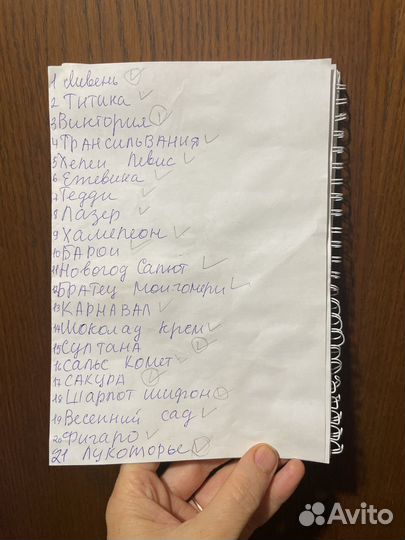 1 Ливень
2 Титика
3 Виктория
4 Трансильвания
5 Хелен Левис
6 Ежевика
7 Тедди
8 Лазер
9 Хамелеон
10 БАРОН
11 Новогод Салют
12 Братец Монгомери
13 КАРНАВАЛ
14 Шоколад крем
15 Султана
16 Сальс Комет
17 САКУРА
18 Шарлот шифон
19 Весенний сад
20 Фигаро
21 Лукоморье
Avito